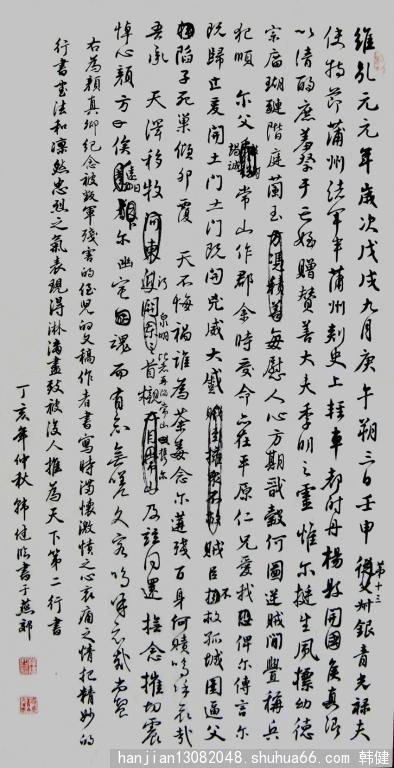 維乾元元年歲次戊戌九月庚午朔三日壬申第十三從父銀青光祿夫
使持節蒲州諸軍事蒲州刺史上輕車都尉丹楊縣開國侯真卿
以清酌庶羞祭于亡姪贈贊善大夫季明之靈惟爾挺生夙標幼德
宗廟瑚璉階庭蘭玉方憑積善每慰人心方期戩穀何圖逆賊閒釁稱兵
犯順爾父竭誠常山作郡余時受命亦在平原仁兄愛我俾爾傳言爾
既歸止爰開土門土門既開兇威大蹙賊臣擁衆不救賊臣不救孤城圍逼父
陷子死巢傾卵覆天不悔禍誰為荼毒念爾遘殘百身何贖嗚呼哀哉
吾承天澤移牧河東近泉明比者再陷常山攜爾首櫬及茲同還撫念摧切震
悼心顏方俟遠日爾幽宅魂而有知無嗟久客嗚呼哀哉尚饗
右為顏真卿紀念被叛軍殘害的侄兒的文稿作者書寫時滿懷激憤之心哀痛之情把精妙的
行書書法和凜然忠烈之氣表現得淋漓盡致被後人推為天下第二行書
丁亥年仲秋韓健臨書于燕郊
hanjian13082048.shuhua66.com 韩健